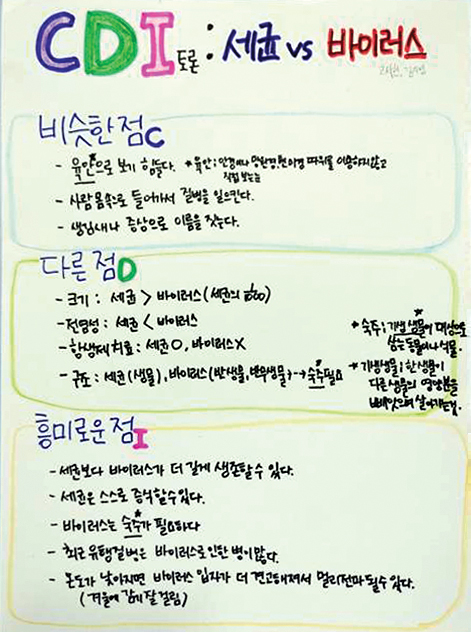 CDI 토론 : 세균 vs 바이러스
비슷한점C
- 육안*으로 보기 힘들다. *육안; 안경이나 망원경, 현미경 따위를 이용하지 않고
직접 보는 눈
- 사람 몸속으로 들어가서 질병을 일으킨다.
- 생김새나 증상으로 이름을 짓는다.
다른점D
- 크기 : 세균 > 바이러스 (세균의
- 전염성 : 세균 < 바이러스
- 항생제 치료 : 세균O, 바이러스X
- 구조 : 세균(생물), 바이러스(반생물, → 숙주*필요
*숙주; 기생*생물이 대상으로
삼는 동물이나 식물.
*기생생물; 한 생물이
다른 생물의 영양분을
빼앗으며 살아가는 것.
흥미로운점I
- 세균보다 바이러스가 더 길게 생존할 수 있다.
- 세균은 스스로 증식할 수 있다.
- 바이러스는 숙주*가 필요하다
- 최근 유행질병은 바이러스로 인한 병이 많다.
- 온도가 낮아지면 바이러스 입자가 더 견고해져서 멀리 전파될 수 있다.
(겨울에 감기 잘 걸림)